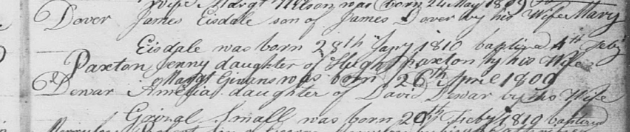 Wife Margt Nelson was born 24 May 1809
Dover James Eisdale son of James Dover by his Wife Mary
Eisdale was born 28th Jany 1810 baptized 4th Feby
Paxton Jenny daughter of Hugh Paxton by his Wife
Margt was born 26th April 1809
Dewar Amelia daughter of David Dewar by his Wife
Small was born 20th Feby 1810 baptized